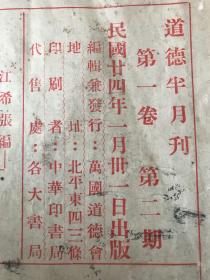 道德半月刊
第一卷 第二期
民國廿四年一月卅一日出版
編輯兼發行：萬國道德會
地址：北平東四三條
印刷者：中華印書局
代售處：各大書局
江希張編